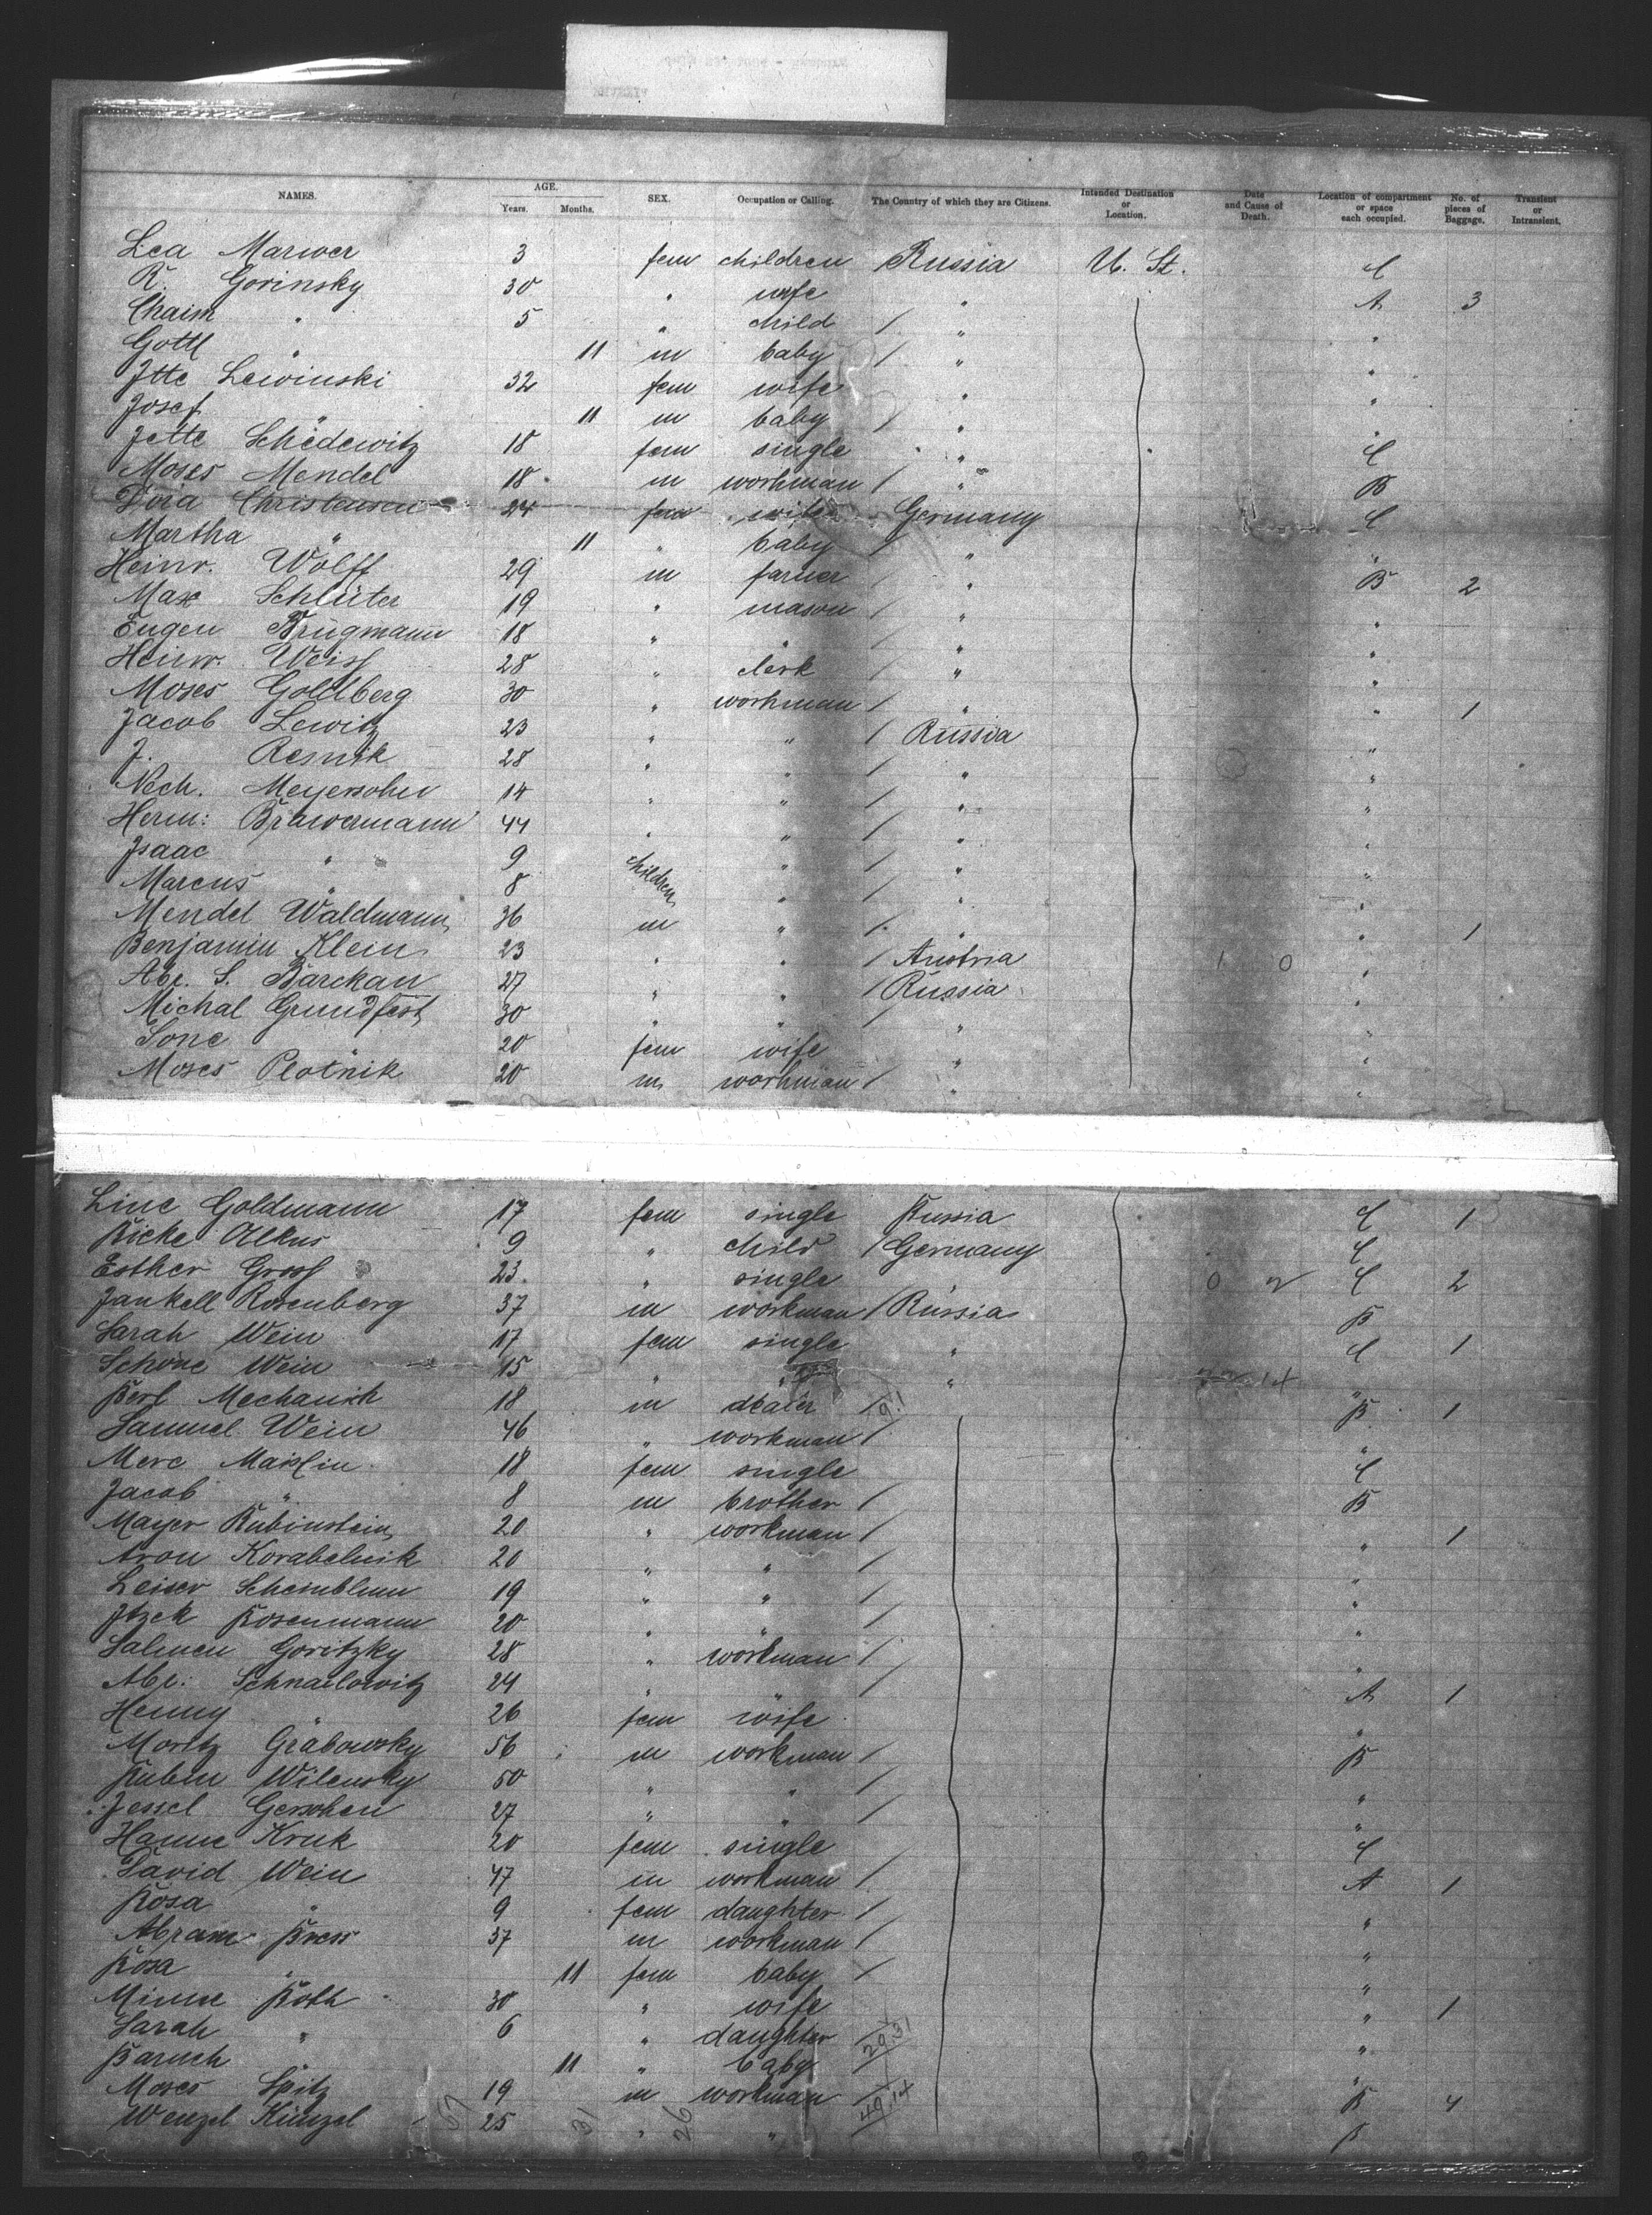 NAMES. AGE. Years. Months. SEX. Occupation or Calling. The Country of which they are Citizens. Intended Destination or Location. Date and Cause of Death. Location of compartment or space each occupied. No. of pieces of Baggage. Transient or Intransient.
Lea Marwer 3 fem children Russia U. St. C
R. Gorinsky 30 " wife " A 3
Chaim " 5 " child / " "
Gottl " 11 m baby / " "
Itte Lewinski 32 fem wife " "
Josef " 11 m baby / " "
Jette Schedewitz 18 fem single " C
Moses Mendel 18 m workman / " B
Dora Christensen 24 fem wife Germany C
Martha " 11 " baby / " "
Heinr. Wolff 29 m farmer / " B 2
Max Schlüter 19 " mason / " "
Eugen Brügmann 18 " " / " "
Heinr. Weiss 28 " clerk / " "
Moses Goldberg 30 " workman / " " 1
Jacob Lewitz 23 " " / Russia "
J. Resnik 28 " " / " "
Nech. Meyersohn 14 " " / " "
Herm: Brawermann 44 " " / " "
Isaac " 9 children " / " "
Marcus " 8 " / " "
Mendel Waldmann 36 m " / " " 1
Benjamin Klein 23 " " / Austria 1 0 "
Abr. S. Barckan 27 " " / Russia "
Michal Grundfest 30 " " / " "
Sone " 20 fem wife " "
Moses Plotnik 20 m workman / " "
Line Goldmann 17 fem single Russia C 1
Ricke Olkus 9 " child / Germany C
Esther Gross 23 " single 0 2 C 2
Jankell Rosenberg 37 m workman / Russia B
Sarah Wein 17 fem single " C 1
Schöne Wein 15 " " " "
Berl Mechanik 18 m dealer / B 1
Samuel Wein 46 " workman / "
Mere 18 fem single C
Jacob " 8 m brother / B
Mayer Rubinstein 20 " workman / " 1
Aron Korabelnik 20 " " / "
Leiser Scheinblum 19 " " / "
Itzek Rosenmann 20 " " / "
Salmen Goritzky 28 " workman / "
Abr: Schnailowitz 24 " " / A 1
Henny " 26 fem wife "
Moritz Grabowsky 56 m workman / B
Rubin Wilensky 50 " " / "
Jessel Gersohen 27 " " / "
Hanne Kruk 20 fem single C
David Wein 47 m workman / A 1
Rosa " 9 fem daughter / "
Abram Press 37 m workman / "
Rosa " 11 fem baby / "
Minne Roth 30 " wife " 1
Sarah " 6 " daughter / "
Baruch " 11 " baby / "
Moses Spitz 19 m workman / B 4
Wenzel Künzel 25 " " B